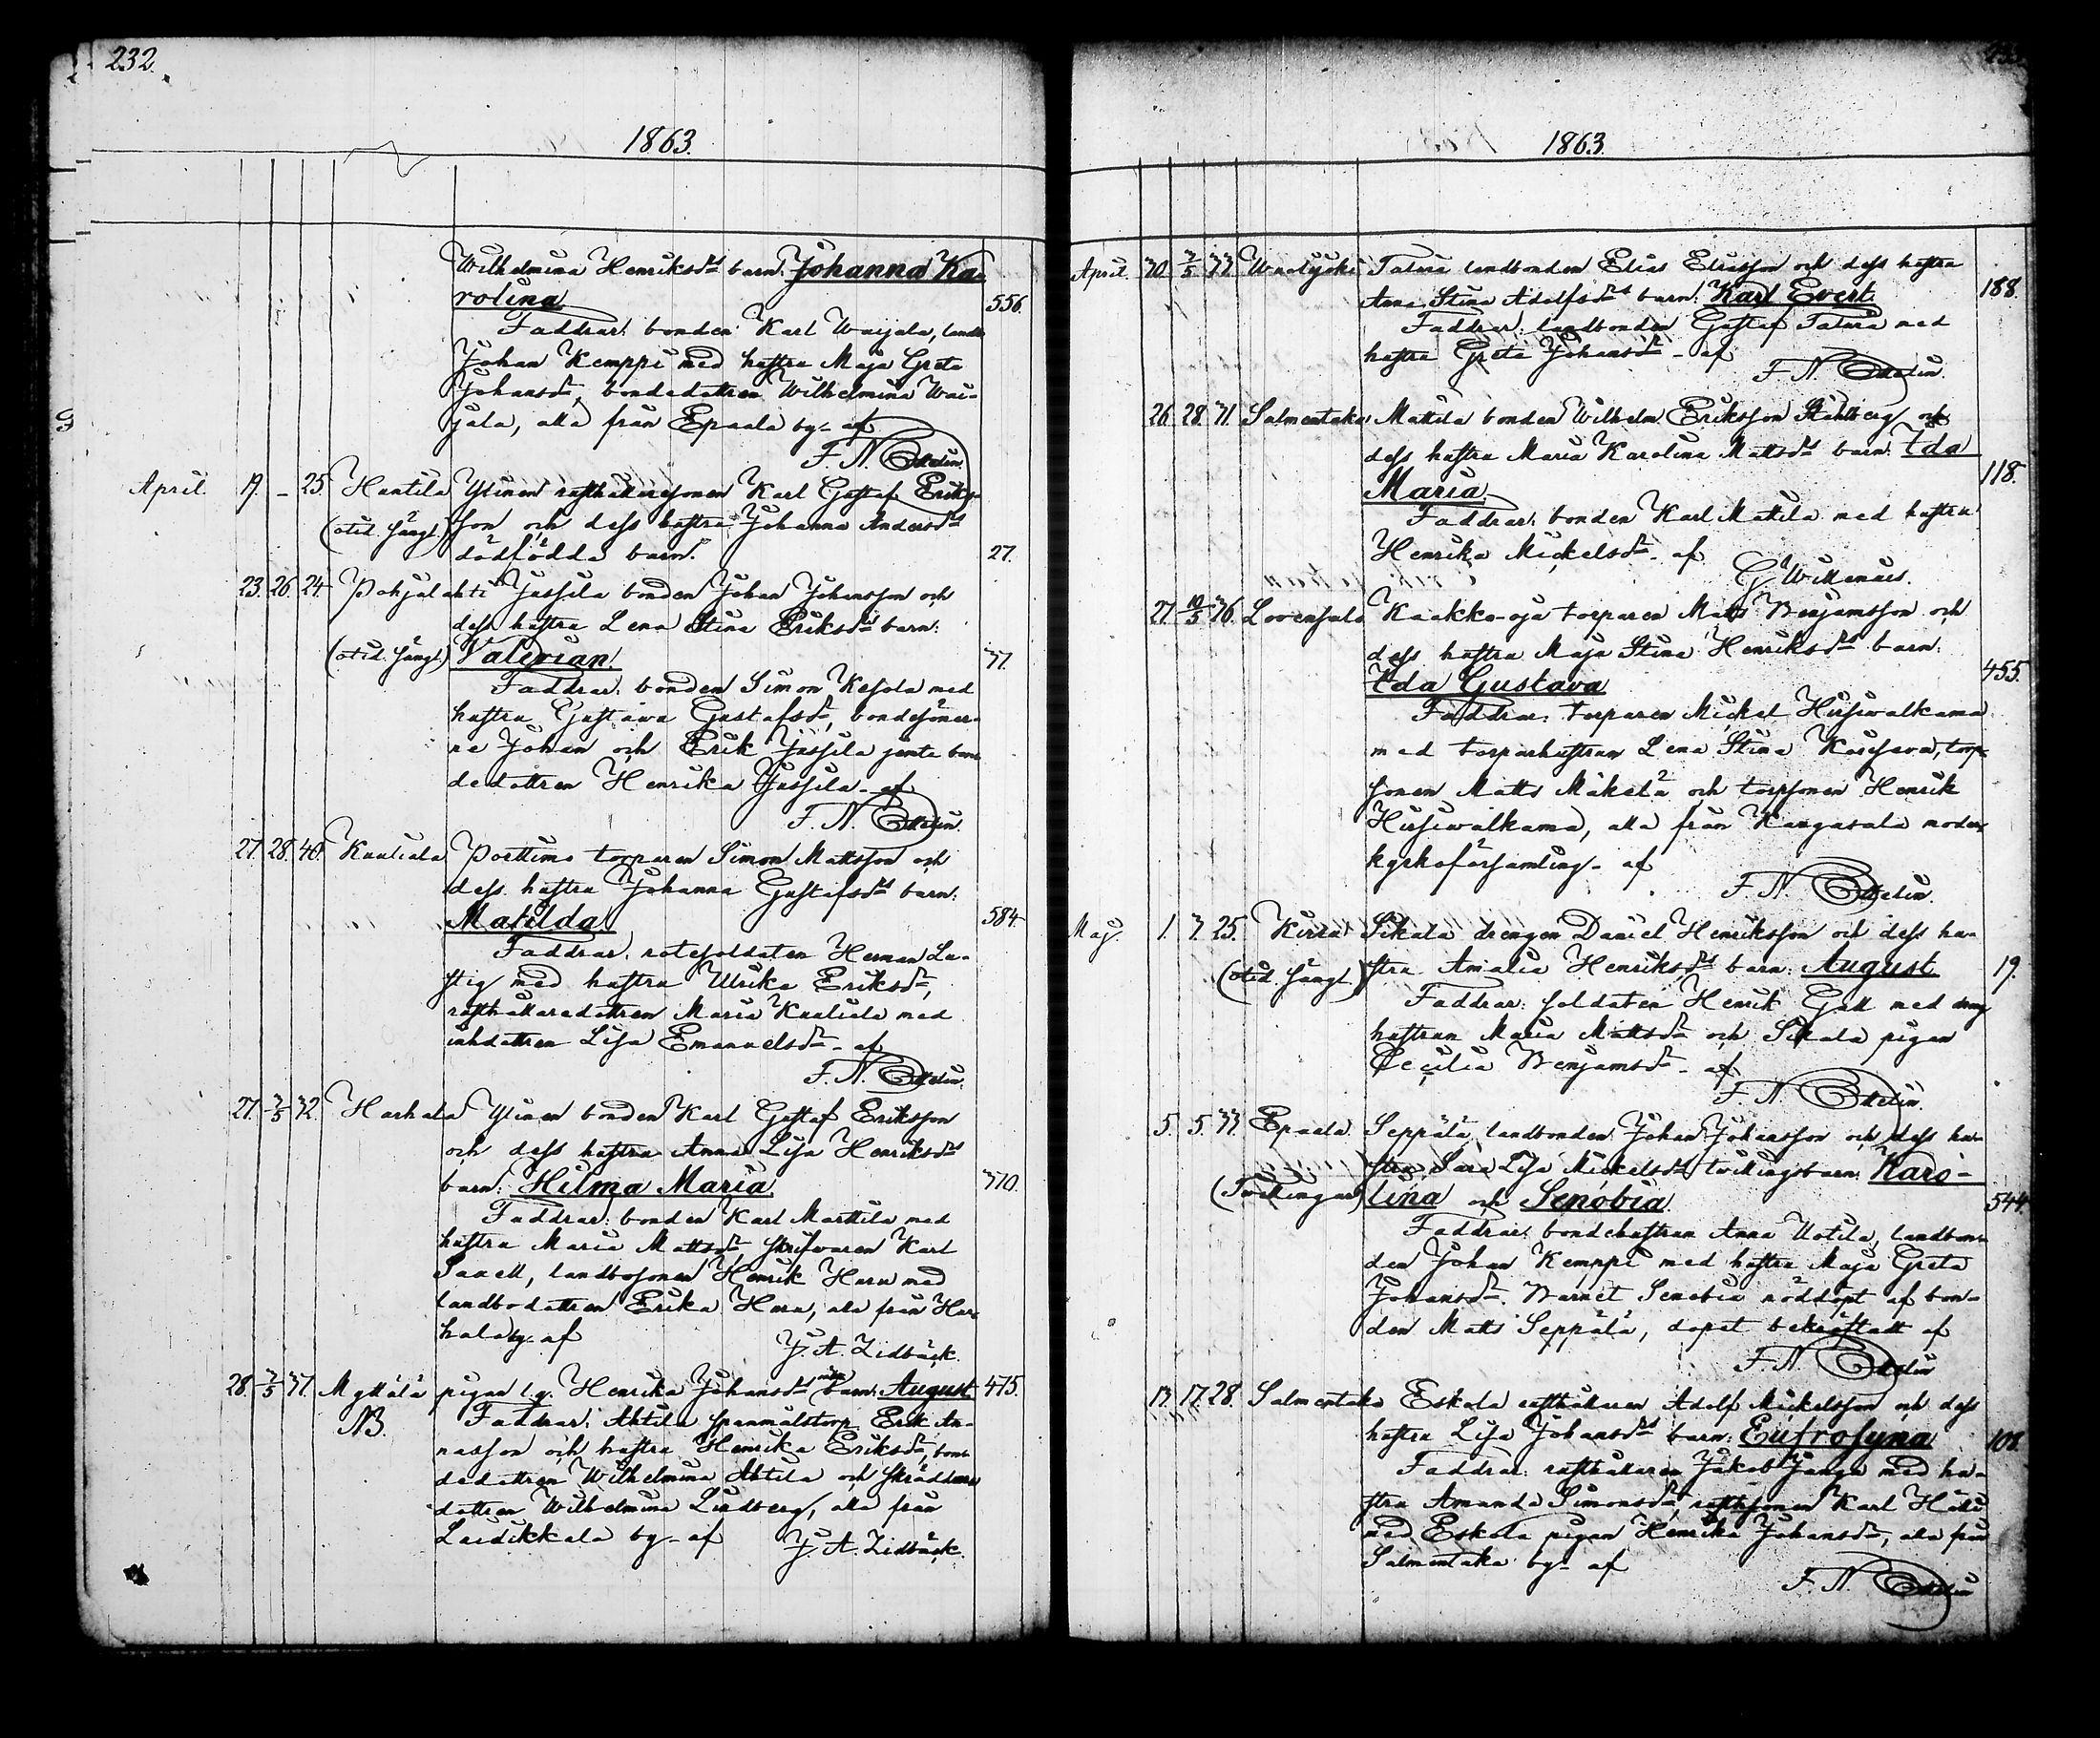 232.
1863.
Wilhelmina Henriksdrs barn: Johanna Ka-
rolina 556.
Faddrar: bonden Karl Waijala, landb
Johan Kemppi med hustru Maja Greta
Johansdr, bondedottren Wilhelmina Wai-
jala, alla från Epaala by - af
F. N.
April. 19. - 25. Hantila Ylinen rusthållaresonen Karl Gustaf Eriks-
(otid. fångt) son och dess hustru Johanna Andersdrs
dödfödda barn. 27.
23. 26. 24. Pohjalahti Jussila bonden Johan Johansson och
dess hustru Lena Stina Eriksdrs barn:
(otid. fångt) Valerian. 37.
Faddrar: bonden Simon Kesola med
hustru Gustava Gustafsdr, bondesöner-
ne Johan och Erik Jussila jemte bon-
dedottren Henrika Jussila - af
F. N.
27. 28. 40. Kuuliala Porttimo torparen Simon Mattsson och
dess hustru Johanna Gustafsdrs barn:
Matilda. 584.
Faddrar: rotesoldaten Herman Lu-
stig med hustru Ulrika Eriksdr,
rusthållaredottren Maria Kuuliala med
inhdottren Lisa Emanuelsdr - af
F. N.
27. 3/5 32. Harhala Ylinen bonden Karl Gustaf Eriksson
och dess hustru Anna Lisa Henriksdrs
barn: Hilma Maria. 310.
Faddrar: bonden Karl Marttila med
hustru Maria Mattsdr, skrifvaren Karl
Saxell, landbosonen Henrik Haru med
landbodottren Erika Haru, alla från Har-
hala by - af J. A. Lidbäck.
28. 3/5 37. Myttälä pigan lg. Henrika Johansdrs barn: August 475.
NB. Faddrar: Ahtila spanmålstorp. Erik An-
nasson och hustru Henrika Eriksdr, bon-
dedottren Wilhelmina Ahtila och skräddare
dottren Wilhelmina Lindberg, alla från
Laidikkala by - af J. A. Lidbäck.
1863.
April. 30. 3/5 33. Taluia landbonden Elias Eliasson och dess hustru
Anna Stina Adolfsdrs barn: Karl Evert. 188.
Faddrar: landbonden Gustaf Taluia med
hustru Greta Johansdr - af
F. N.
26. 28. 31. Salmentaka Mattila bonden Wilhelm Eriksson Ståhlberg och
dess hustru Maria Karolina Mattsdrs barn: Ida
Maria. 118.
Faddrar: bonden Karl Mattila med hustru
Henrika Mickelsdr - af
G. Willenius.
27. 10/5 36. Lovensalo Kaakko-oja torparen Matts Benjamsson och
dess hustru Maja Stina Henriksdrs barn:
Ida Gustava 455.
Faddrar: torparen Mickel Hirsiwalkama
med torparhustrun Lena Stina torp-
sonen Matts Mäkelä och torpsonen Henrik
Hirsiwalkama, alla från Kangasala moder-
kyrkoförsamling - af
F. N.
Maj. 1. 3. 25. Kirra Sikala drengen Daniel Henriksson och dess hu-
(otid. fångt) stru Amalia Henriksdrs barn: August 19.
Faddrar: soldaten Henrik Gall med dreng
hustrun Maria Mattsdr och Sikala pigan
Cecilia Benjamsdr - af
F. N.
5. 5. 33. Epaala Seppälä landbonden Johan Johansson och dess hu-
stru Sara Lisa Mickelsdrs tvillingsbarn: Karo-
(Tvillingar) lina och Senobia. 544.
Faddrar: bondehustrun Anna Uotila, landbon-
den Johan Kemppi med hustru Maja Greta
Johansdr. Barnet Senobia nöddöpt af bon-
den Matts Seppälä, dopet bekräftadt af
F. N.
13. 17. 28. Salmentaka Eskala rusthållaren Adolf Mickelsson och dess
hustru Lisa Johansdrs barn: Eufrosyna 108.
Faddrar: rusthållaren Jakob Junga med hu-
stru Amanda Simonsdr, rusthsonen Karl
med Eskola pigan Henrika Johansdr, alla från
Salmentaka by - af
F. N.